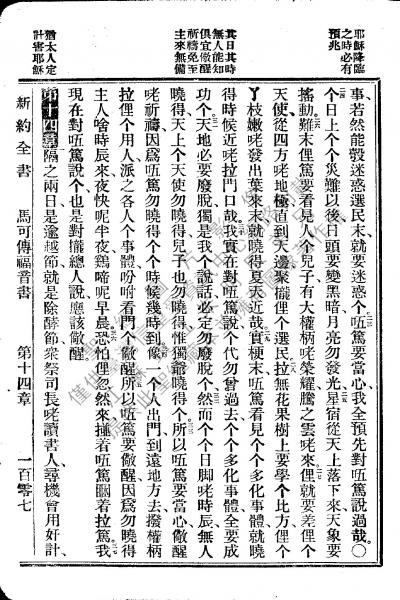 耶穌降臨
之時必有
預兆
其日其時
無人能知
俱宜儆醒
祈禱免至
主來無備
猶太人定
計害耶穌
事若然能彀迷惑選民末就要迷惑个㕶篤要當心我全預先對㕶篤說過哉〇
个日上个个災難以後日頭要變黑暗月亮勿發光星宿從天上落下來天象要
搖動難末俚篤要看見人个兒子有大權柄咾榮耀騰之雲咾來俚就要差俚个
天使從四方咾地極值到天邊聚攏俚个選民拉無花果樹上要學个比方俚个
丫枝嫩咾發出葉來末就曉得夏天近哉實梗末㕶篤看見个个多化事體就曉
得時候近咾拉門口哉我實在對㕶篤說个代勿曾過去个个多化事體全要成
功个天地必要廢脫獨是我个說話必定勿廢脫个然而个个日脚咾時辰無人
曉得天上个天使勿曉得兒子也勿曉得惟獨爺曉得个所以㕶篤要當心儆醒
咾祈禱因爲㕶篤勿曉得个个時候幾時到像一个人出門到遠地方去撥權柄
拉俚个用人派之各人个事體吩咐看門个儆醒所以㕶篤要儆醒因爲勿曉得
主人啥時辰來夜快呢半夜鷄啼呢早晨恐怕俚忽然來撞着㕶篤㘝着拉篤我
現在對㕶篤說个也是對攏總人說應該儆醒
第十四章隔之兩日是逾越節就是除酵節衆祭司長咾讀書人尋機會用奸計
新約全書 馬可傳福音書 第十四章 一百零七